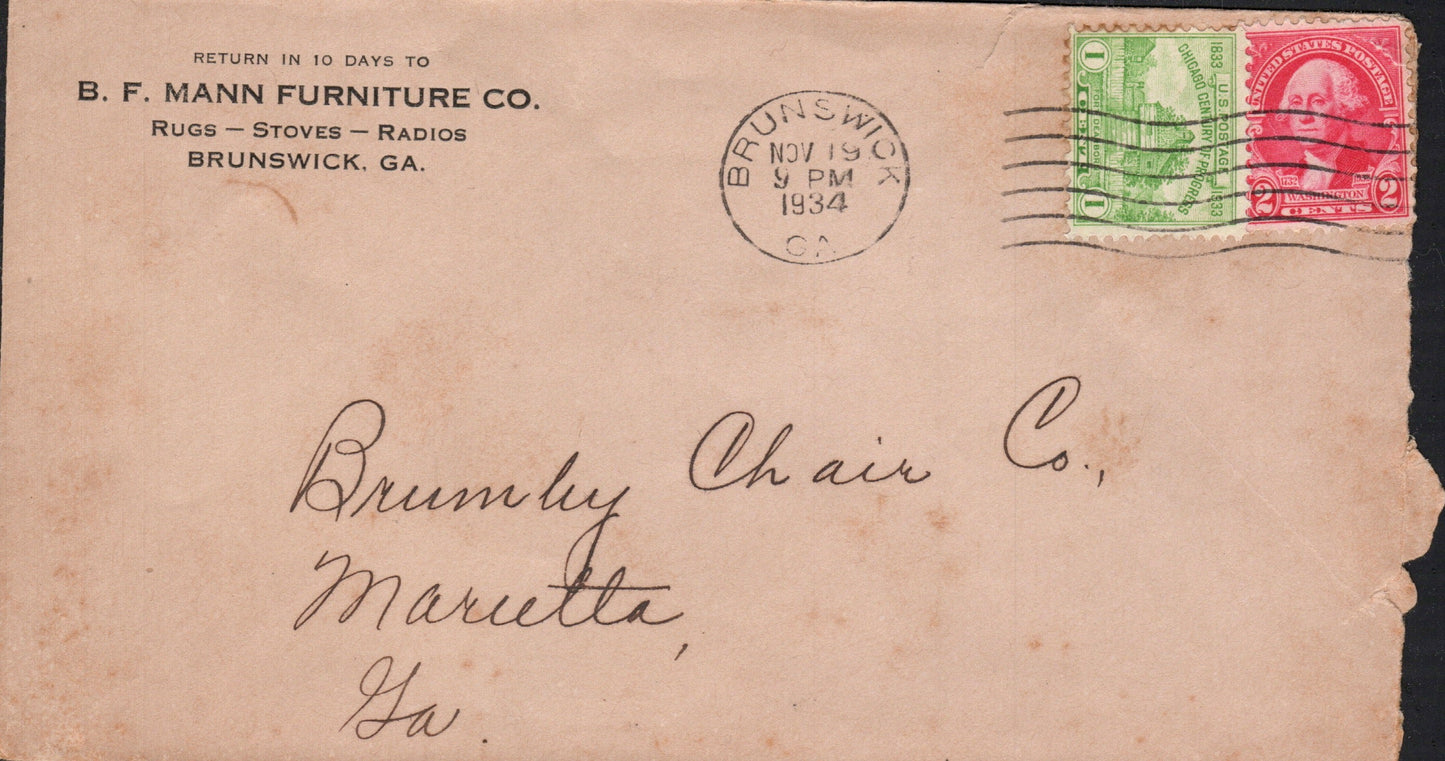 RETURN IN 10 DAYS TO
B. F. MANN FURNITURE CO.
RUGS – STOVES – RADIOS
BRUNSWICK, GA.
BRUNSWICK
NOV 19
9 PM
1934
GA
1833 U.S. POSTAGE 1933
CHICAGO CENTURY OF PROGRESS
FORT DEARBORN
1 1
UNITED STATES POSTAGE
1732
WASHINGTON
2 CENTS 2
Brumby Chair Co.,
Marietta,
Ga.